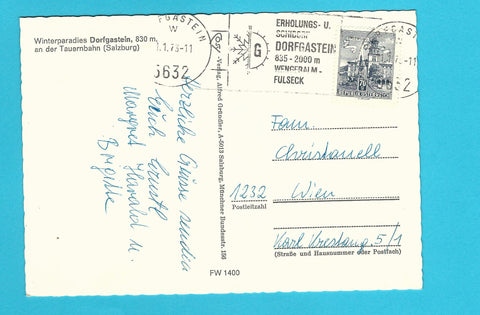 Winterparadies Dorfgastein, 830 m,
an der Tauernbahn (Salzburg)
FGASTEIN
1.1.73-11
5632
ERHOLUNGS- U.
SCHIDORF
DORFGASTEIN
835 - 2000 m
WENGERALM -
FULSECK
G
73-11
632
Verlag, Alfred Gründler, A-5013 Salzburg, Münchner Bundesstr. 156
Herzliche Grüsse senden
Euch
Margret Harald u.
Brigitte
Fam.
Christanell
1232 Wien
Postleitzahl
Karl 5/1
(Straße und Hausnummer oder Postfach)
FW 1400